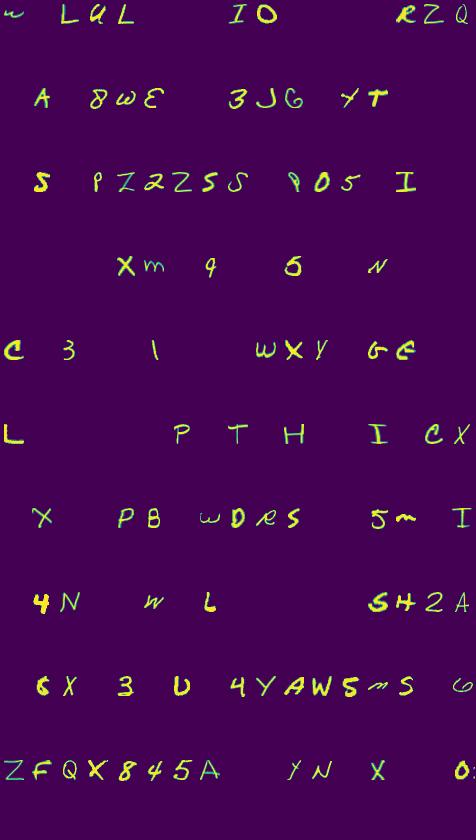 LUL IO RZQ
A 8WE 3JG YT
S PZ2ZSS P05 I
XM 9 5 N
C 3 1 WXY GE
L P T H I CX
X PB WDRS 5M I
4N W L SH2A
6X 3 U 4YAW5MS G
ZFQX845A YN X 0